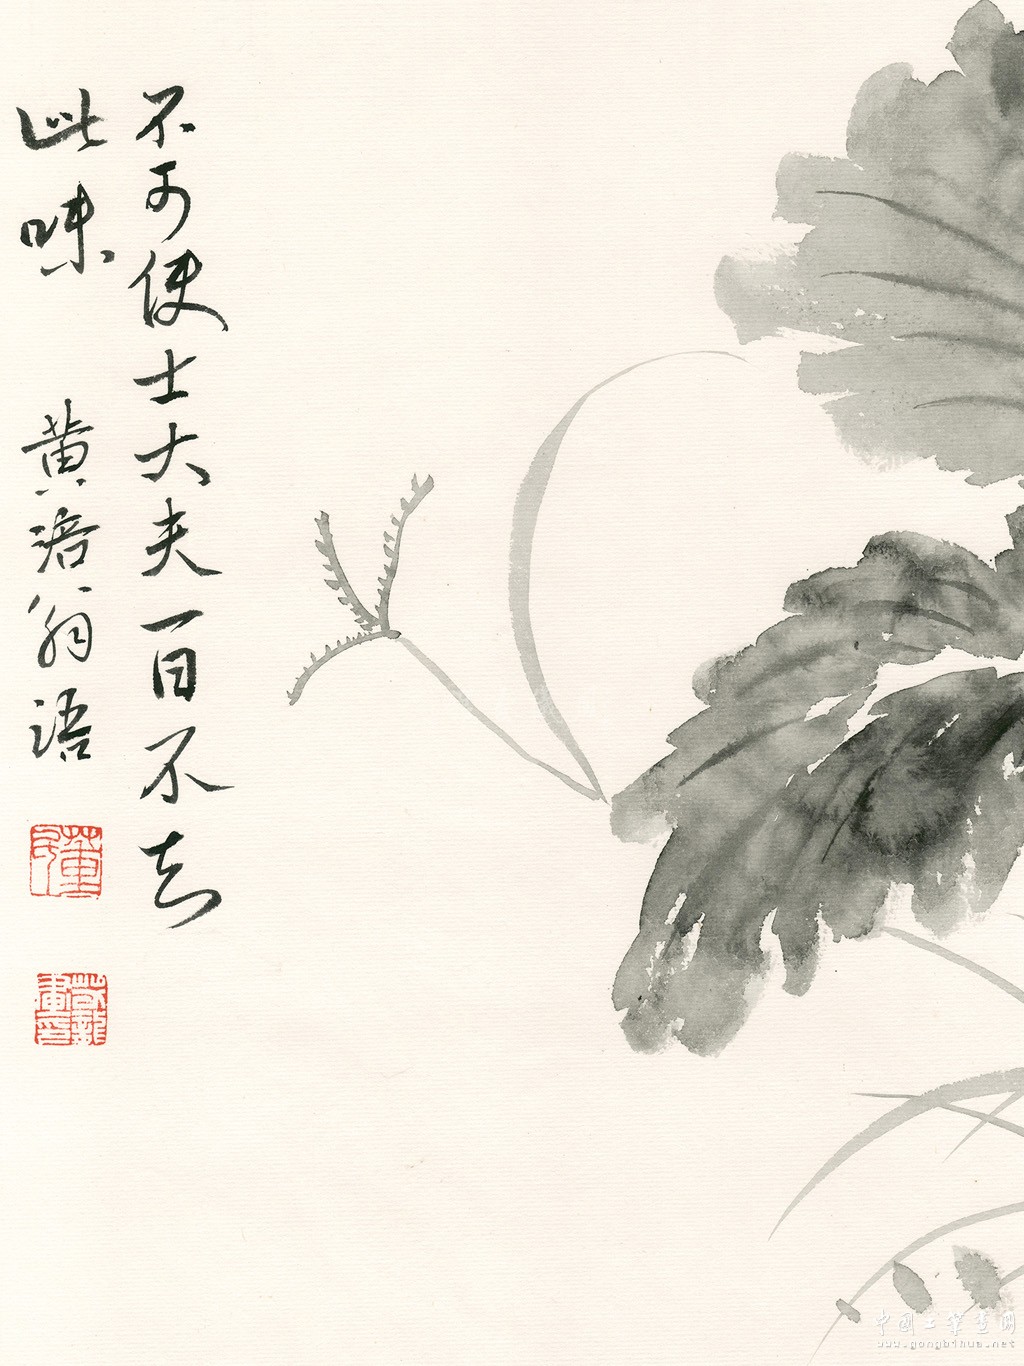 不可使士大夫一日不知
此味 黄涪翁语
中国工笔画网
www.gongbihua.net